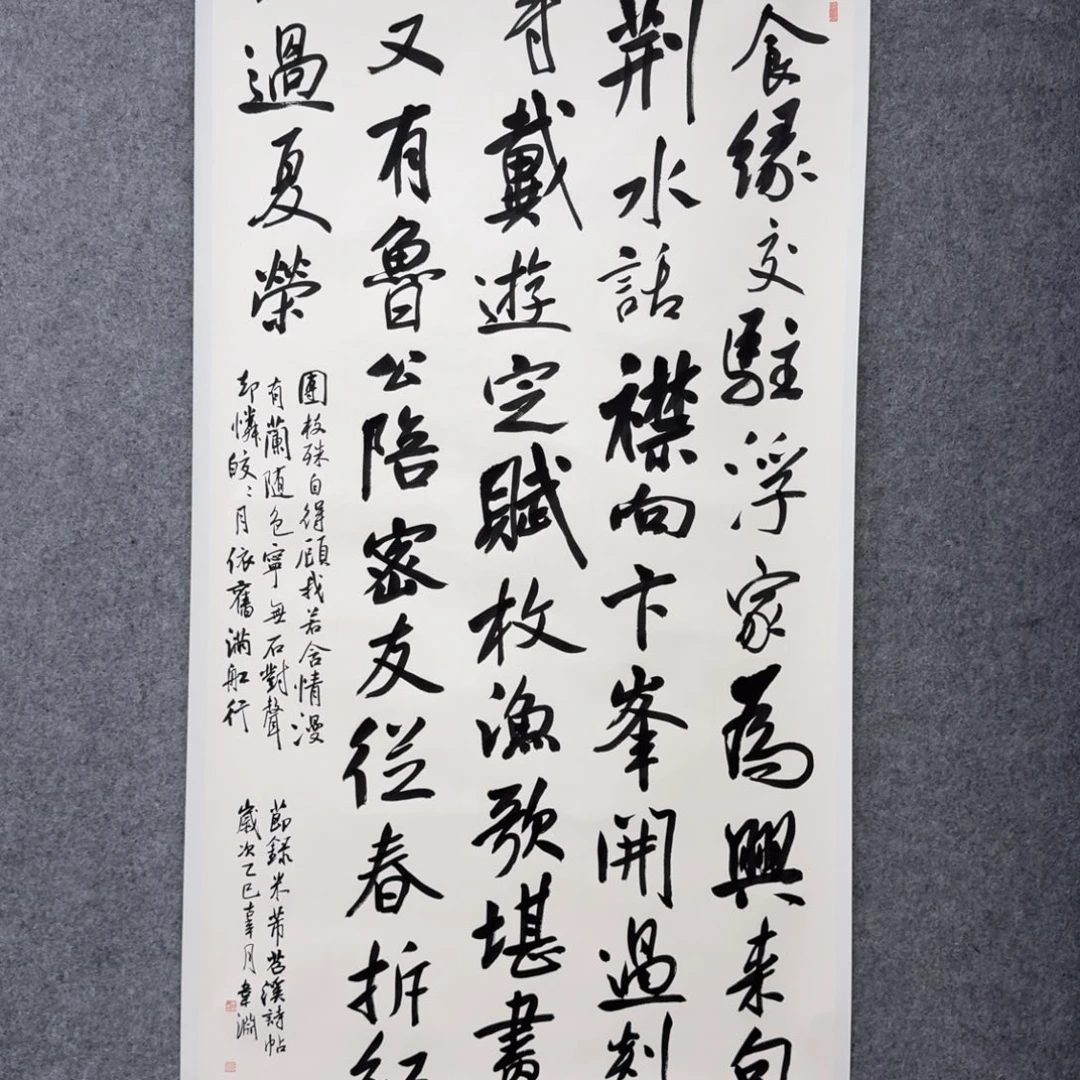 食緣交駐浮家為興来句
荆水話襟向卞峯開過剡
戴遊定賦枚漁歌堪畫
又有魯公陪密友從春拆紅
過夏榮
團枝殊自得顧我若含情漫
有蘭隨色寧無石對聲
却憐皎〻月依舊滿舡行
節錄米芾苕溪詩帖
歲次乙巳辜月韋淵